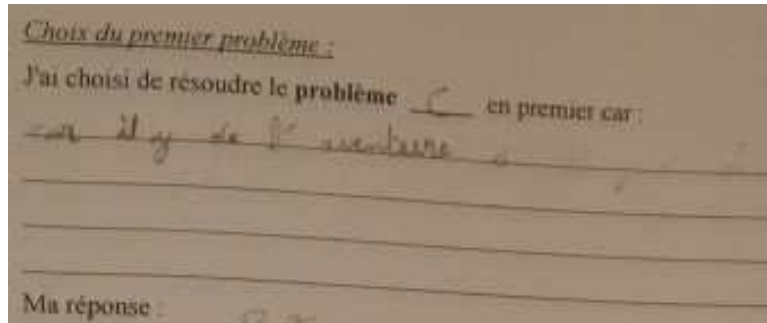 Choix du premier problème :
J'ai choisi de résoudre le problème C en premier car :
car il y de l'aventure
Ma réponse :